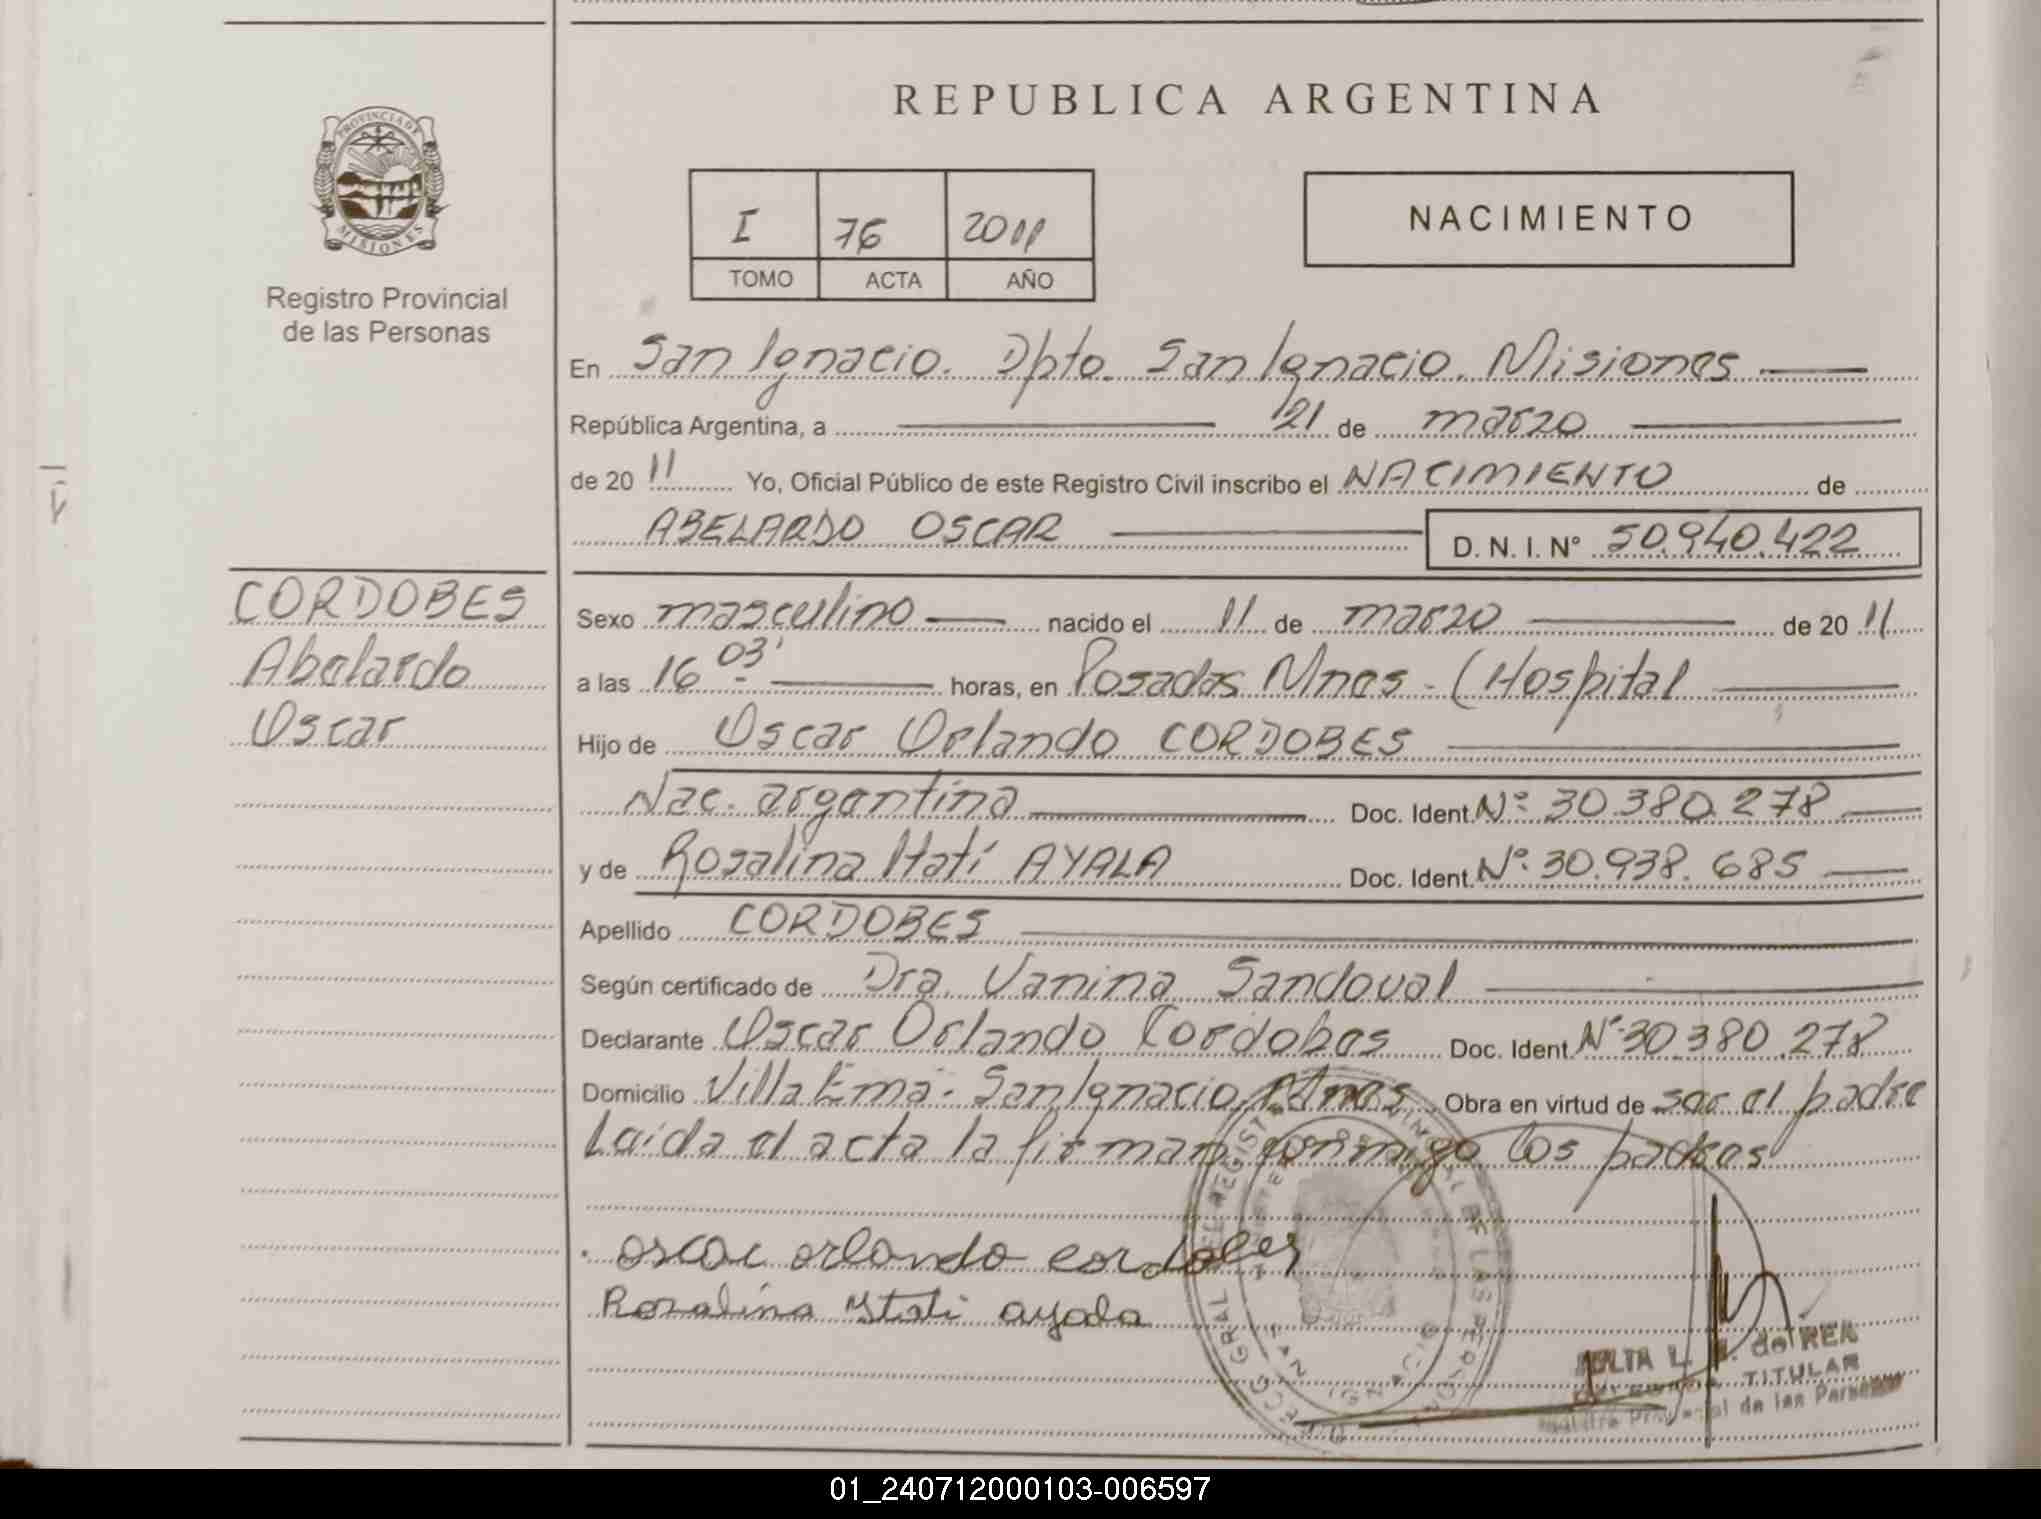 REPUBLICA ARGENTINA
PROVINCIA DE
MISIONES
Registro Provincial
de las Personas
I 76 2011
TOMO ACTA AÑO
NACIMIENTO
En San Ignacio. Dpto. San Ignacio. Misiones
República Argentina, a 21 de marzo
de 20 11 Yo, Oficial Público de este Registro Civil inscribo el NACIMIENTO de
ABELARDO OSCAR D. N. I. N° 50.940.422
CORDOBES
Abelardo
Oscar
Sexo masculino nacido el 11 de marzo de 20 11
a las 16 03' horas, en Posadas Mnes - (Hospital
Hijo de Oscar Orlando CORDOBES
Nac. argentina Doc. Ident. N°: 30.380.278
y de Rosalina Itatí AYALA Doc. Ident. N°: 30.938.685
Apellido CORDOBES
Según certificado de Dra. Vanina Sandoval
Declarante Oscar Orlando Cordobes Doc. Ident. N° 30.380.278
Domicilio Villa Ema - San Ignacio, Mnes. Obra en virtud de ser el padre
Leída el acta la firman conmigo los padres
oscar orlando cordobes
Rosalina Itati ayala
L. de REA
TITULAR
Registro Provincial de las Personas
01_240712000103-006597